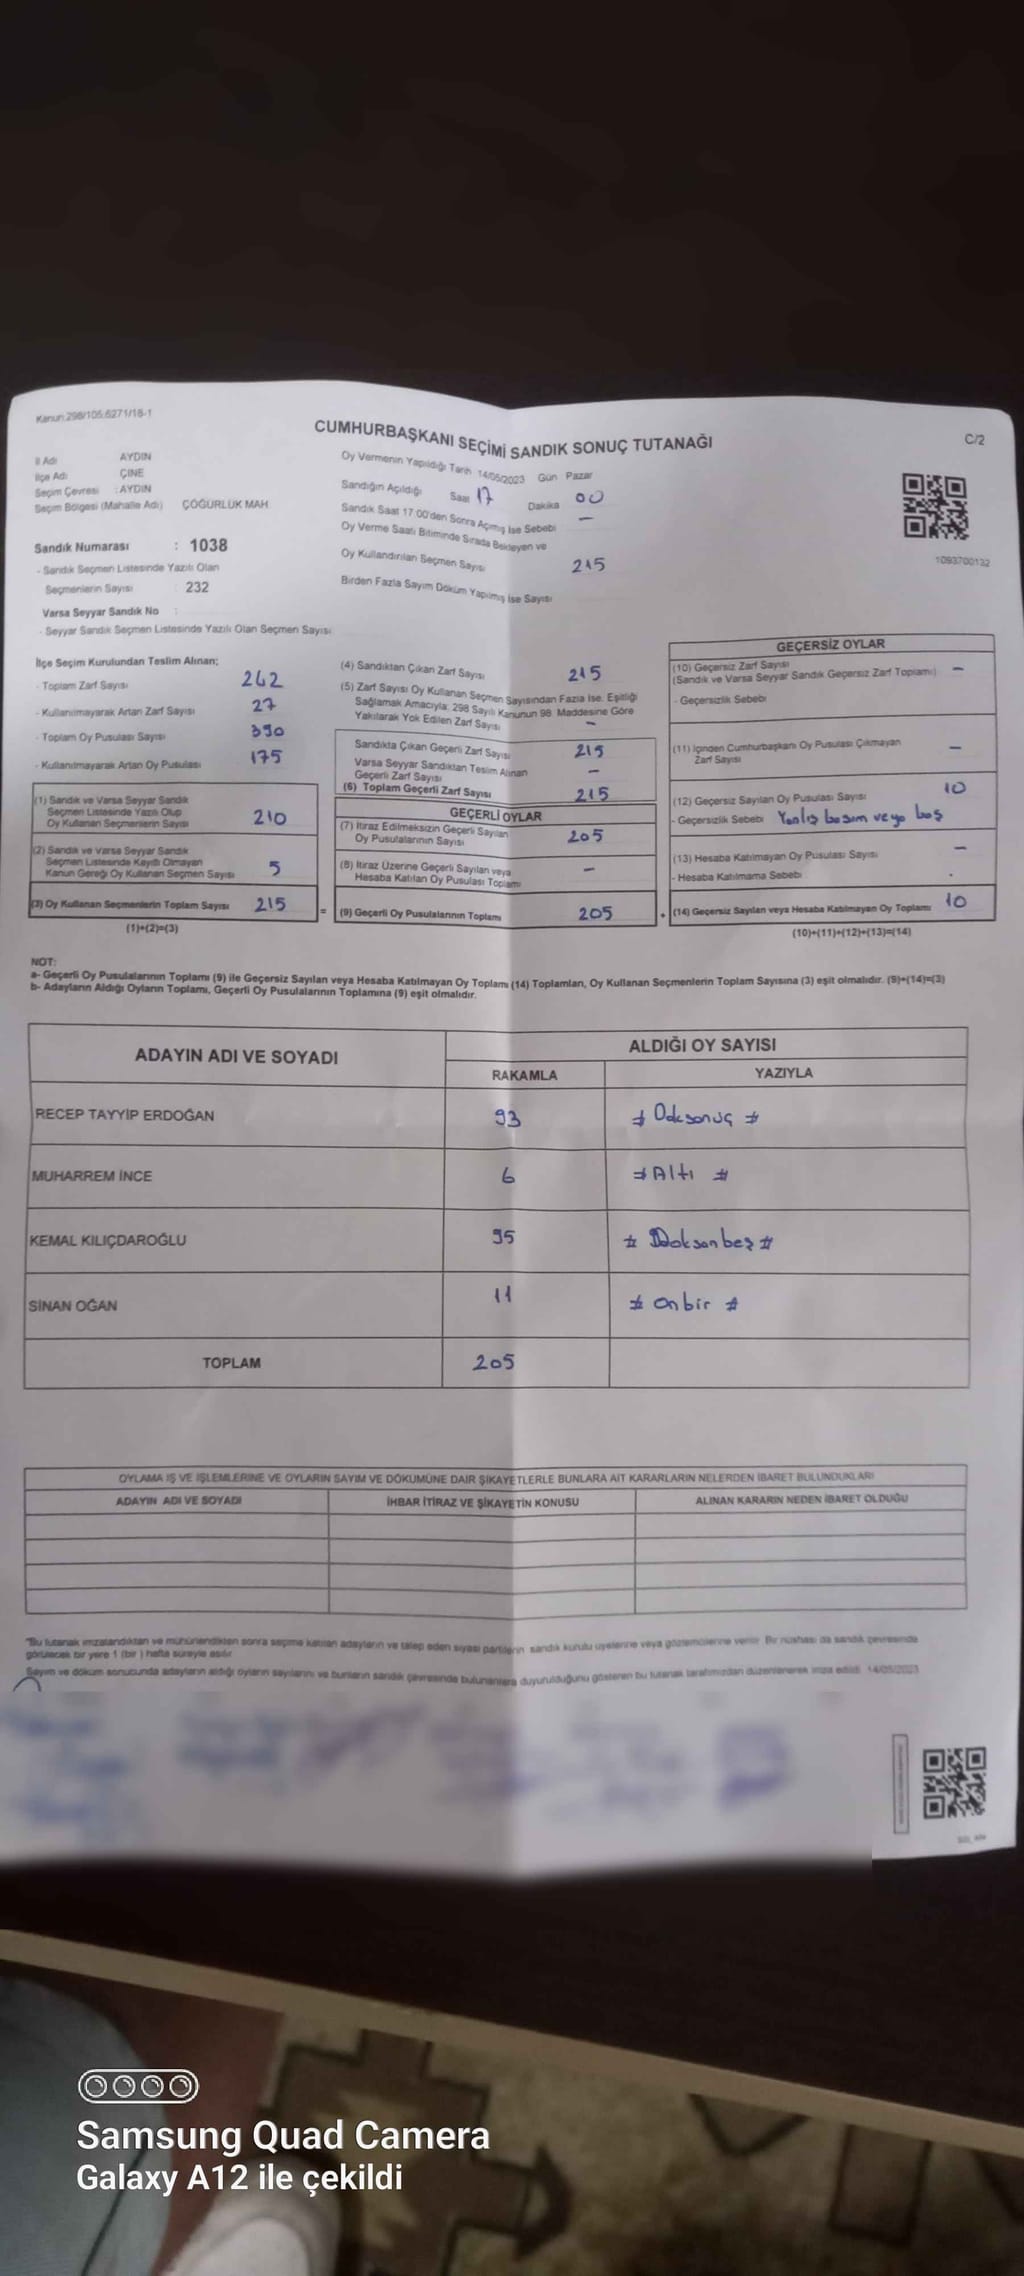 Kanun.298/105.6271/18-1
CUMHURBAŞKANI SEÇİMİ SANDIK SONUÇ TUTANAĞI
C/2
İl Adı AYDIN
İlçe Adı ÇİNE
Seçim Çevresi : AYDIN
Seçim Bölgesi (Mahalle Adı) ÇÖĞÜRLÜK MAH
Oy Vermenin Yapıldığı Tarih 14/05/2023 Gün Pazar
Sandığın Açıldığı Saat 17 Dakika 00
Sandık Saat 17:00'den Sonra Açımış İse Sebebi –
Oy Verme Saati Bitiminde Sırada Bekleyen ve
Oy Kullandırılan Seçmen Sayısı 215
Birden Fazla Sayım Döküm Yapılmış İse Sayısı
1093700132
Sandık Numarası : 1038
- Sandık Seçmen Listesinde Yazılı Olan
Seçmenlerin Sayısı 232
Varsa Seyyar Sandık No :
- Seyyar Sandık Seçmen Listesinde Yazılı Olan Seçmen Sayısı
İlçe Seçim Kurulundan Teslim Alınan;
- Toplam Zarf Sayısı 242
- Kullanılmayarak Artan Zarf Sayısı 27
- Toplam Oy Pusulası Sayısı 390
- Kullanılmayarak Artan Oy Pusulası 175
(1) Sandık ve Varsa Seyyar Sandık
Seçmen Listesinde Yazılı Olup
Oy Kullanan Seçmenlerin Sayısı 210
(2) Sandık ve Varsa Seyyar Sandık
Seçmen Listesinde Kayıtlı Olmayan
Kanun Gereği Oy Kullanan Seçmen Sayısı 5
(3) Oy Kullanan Seçmenlerin Toplam Sayısı 215 =
(1)+(2)=(3)
(4) Sandıktan Çıkan Zarf Sayısı 215
(5) Zarf Sayısı Oy Kullanan Seçmen Sayısından Fazla İse, Eşitliği
Sağlamak Amacıyla, 298 Sayılı Kanunun 98. Maddesine Göre
Yakılarak Yok Edilen Zarf Sayısı –
Sandıkta Çıkan Geçerli Zarf Sayısı 215
Varsa Seyyar Sandıktan Teslim Alınan
Geçerli Zarf Sayısı –
(6) Toplam Geçerli Zarf Sayısı 215
GEÇERLİ OYLAR
(7) İtiraz Edilmeksizin Geçerli Sayılan
Oy Pusulalarının Sayısı 205
(8) İtiraz Üzerine Geçerli Sayılan veya
Hesaba Katılan Oy Pusulası Toplamı –
(9) Geçerli Oy Pusulalarının Toplamı 205 +
GEÇERSİZ OYLAR
(10) Geçersiz Zarf Sayısı –
(Sandık ve Varsa Seyyar Sandık Geçersiz Zarf Toplamı)
- Geçersizlik Sebebi
(11) İçinden Cumhurbaşkanı Oy Pusulası Çıkmayan –
Zarf Sayısı
(12) Geçersiz Sayılan Oy Pusulası Sayısı 10
- Geçersizlik Sebebi Yanlış basım veya boş
(13) Hesaba Katılmayan Oy Pusulası Sayısı –
- Hesaba Katılmama Sebebi
(14) Geçersiz Sayılan veya Hesaba Katılmayan Oy Toplamı 10
(10)+(11)+(12)+(13)=(14)
NOT:
a- Geçerli Oy Pusulalarının Toplamı (9) ile Geçersiz Sayılan veya Hesaba Katılmayan Oy Toplamı (14) Toplamları, Oy Kullanan Seçmenlerin Toplam Sayısına (3) eşit olmalıdır. (9)+(14)=(3)
b- Adayların Aldığı Oyların Toplamı, Geçerli Oy Pusulalarının Toplamına (9) eşit olmalıdır.
ADAYIN ADI VE SOYADI ALDIĞI OY SAYISI
RAKAMLA YAZIYLA
RECEP TAYYİP ERDOĞAN 93 # Doksanüç #
MUHARREM İNCE 6 # Altı #
KEMAL KILIÇDAROĞLU 95 # Doksanbeş #
SİNAN OĞAN 11 # Onbir #
TOPLAM 205
OYLAMA İŞ VE İŞLEMLERİNE VE OYLARIN SAYIM VE DÖKÜMÜNE DAİR ŞİKAYETLERLE BUNLARA AİT KARARLARIN NELERDEN İBARET BULUNDUKLARI
ADAYIN ADI VE SOYADI İHBAR İTİRAZ VE ŞİKAYETİN KONUSU ALINAN KARARIN NEDEN İBARET OLDUĞU
"Bu tutanak imzalandıktan ve mühürlendikten sonra seçime katılan adayların ve talep eden siyasi partilerin sandık kurulu üyelerine veya gözlemcilerine verilir. Bir nüshası da sandık çevresinde
görülecek bir yere 1 (bir ) hafta süreyle asılır.
Sayım ve döküm sonucunda adayların aldığı oyların sayılarını ve bunların sandık çevresinde bulunanlara duyurulduğunu gösteren bu tutanak tarafımızdan düzenlenerek imza edildi. 14/05/2023
Samsung Quad Camera
Galaxy A12 ile çekildi